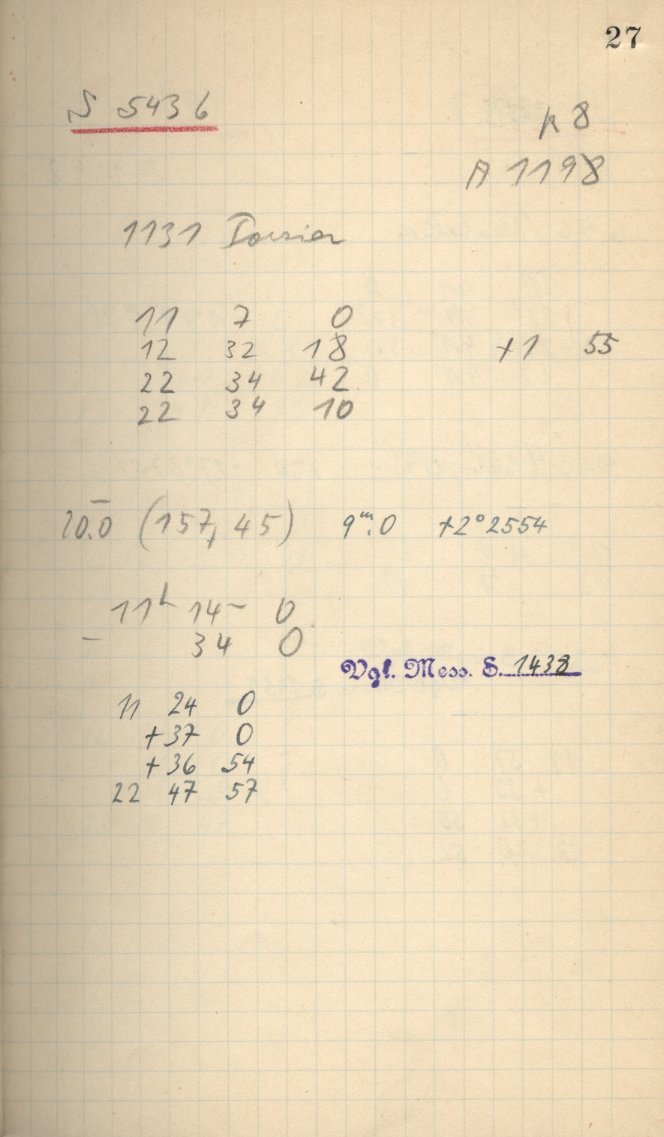 27
S 5436
p 8
A 1198
1131 Porzia
11 7 0
12 32 18 +1 55
22 34 42
22 34 10
10.0 (157, 45) 9ᵐ.0 +2°2554
11ʰ 14ᵐ 0
– 34 0
Vgl. Mess. S. 1438
11 24 0
+37 0
+36 54
22 47 57